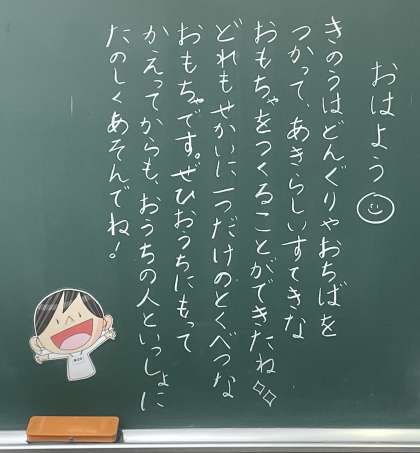 おはよう
きのうはどんぐりやおちばを
つかって、あきらしいすてきな
おもちゃをつくることができたね
どれもせかいに一つだけのとくべつな
おもちゃです。ぜひおうちにもって
かえってからも、おうちの人といっしょに
たのしくあそんでね!